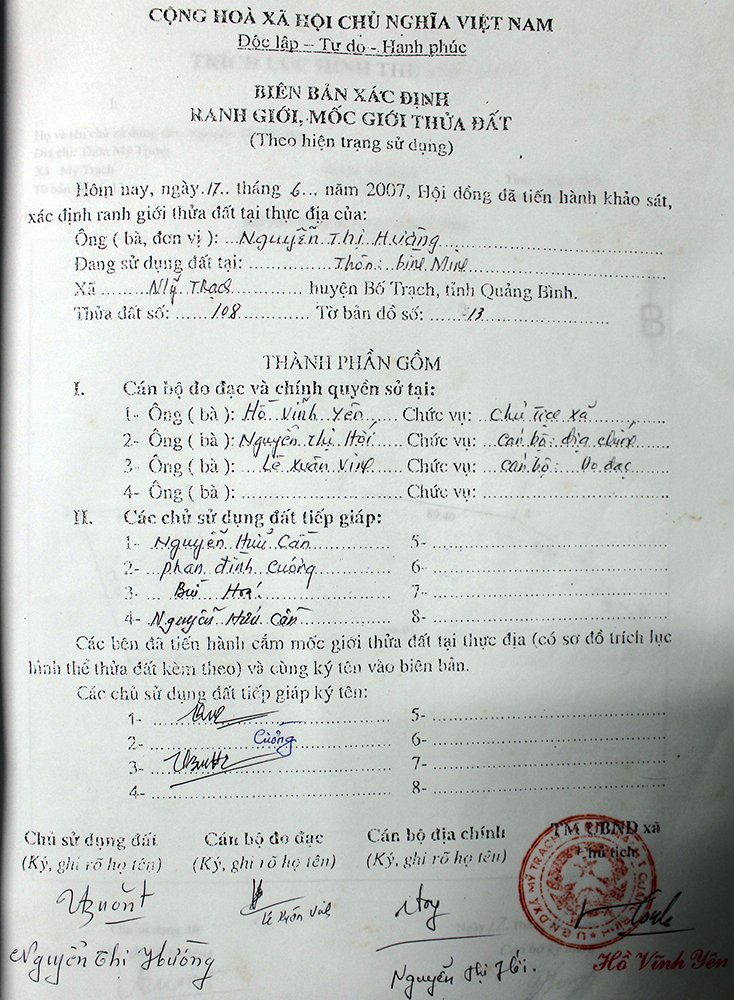 CỘNG HOÀ XÃ HỘI CHỦ NGHĨA VIỆT NAM
Độc lập – Tự do - Hạnh phúc
BIÊN BẢN XÁC ĐỊNH
RANH GIỚI, MỐC GIỚI THỬA ĐẤT
(Theo hiện trạng sử dụng)
Hôm nay, ngày 17.. tháng 6... năm 2007, Hội đồng đã tiến hành khảo sát,
xác định ranh giới thửa đất tại thực địa của:
Ông ( bà, đơn vị ): ...Nguyễn Thị Hường
Đang sử dụng đất tại: Thôn: bình Minh
Xã Mỹ Trạch huyện Bố Trạch, tỉnh Quảng Bình.
Thửa đất số: 108 Tờ bản đồ số: 13
THÀNH PHẦN GỒM
I. Cán bộ đo đạc và chính quyền sở tại:
1- Ông ( bà ): Hồ Vĩnh Yên Chức vụ: Chủ tịch xã
2- Ông ( bà ): Nguyễn Thị Hồi Chức vụ: cán bộ địa chính
3- Ông ( bà ): Lê Xuân Vinh Chức vụ: cán bộ Đo đạc
4- Ông ( bà ): Chức vụ:
II. Các chủ sử dụng đất tiếp giáp:
1- Nguyễn Hữu Cần 5-
2- Phan đình Cường 6-
3- Bùi 7-
4- Nguyễn Hữu Cần 8-
Các bên đã tiến hành cắm mốc giới thửa đất tại thực địa (có sơ đồ trích lục
hình thể thửa đất kèm theo) và cùng ký tên vào biên bản.
Các chủ sử dụng đất tiếp giáp ký tên:
1- 5-
2- Cường 6-
3- 7-
4- 8-
Chủ sử dụng đất Cán bộ đo đạc Cán bộ địa chính TM UBND xã
(Ký, ghi rõ họ tên) (Ký, ghi rõ họ tên) (Ký, ghi rõ họ tên) Chủ tịch
Lê Xuân Vinh
Nguyễn Thị Hường Nguyễn Thị Hồi. Hồ Vĩnh Yên